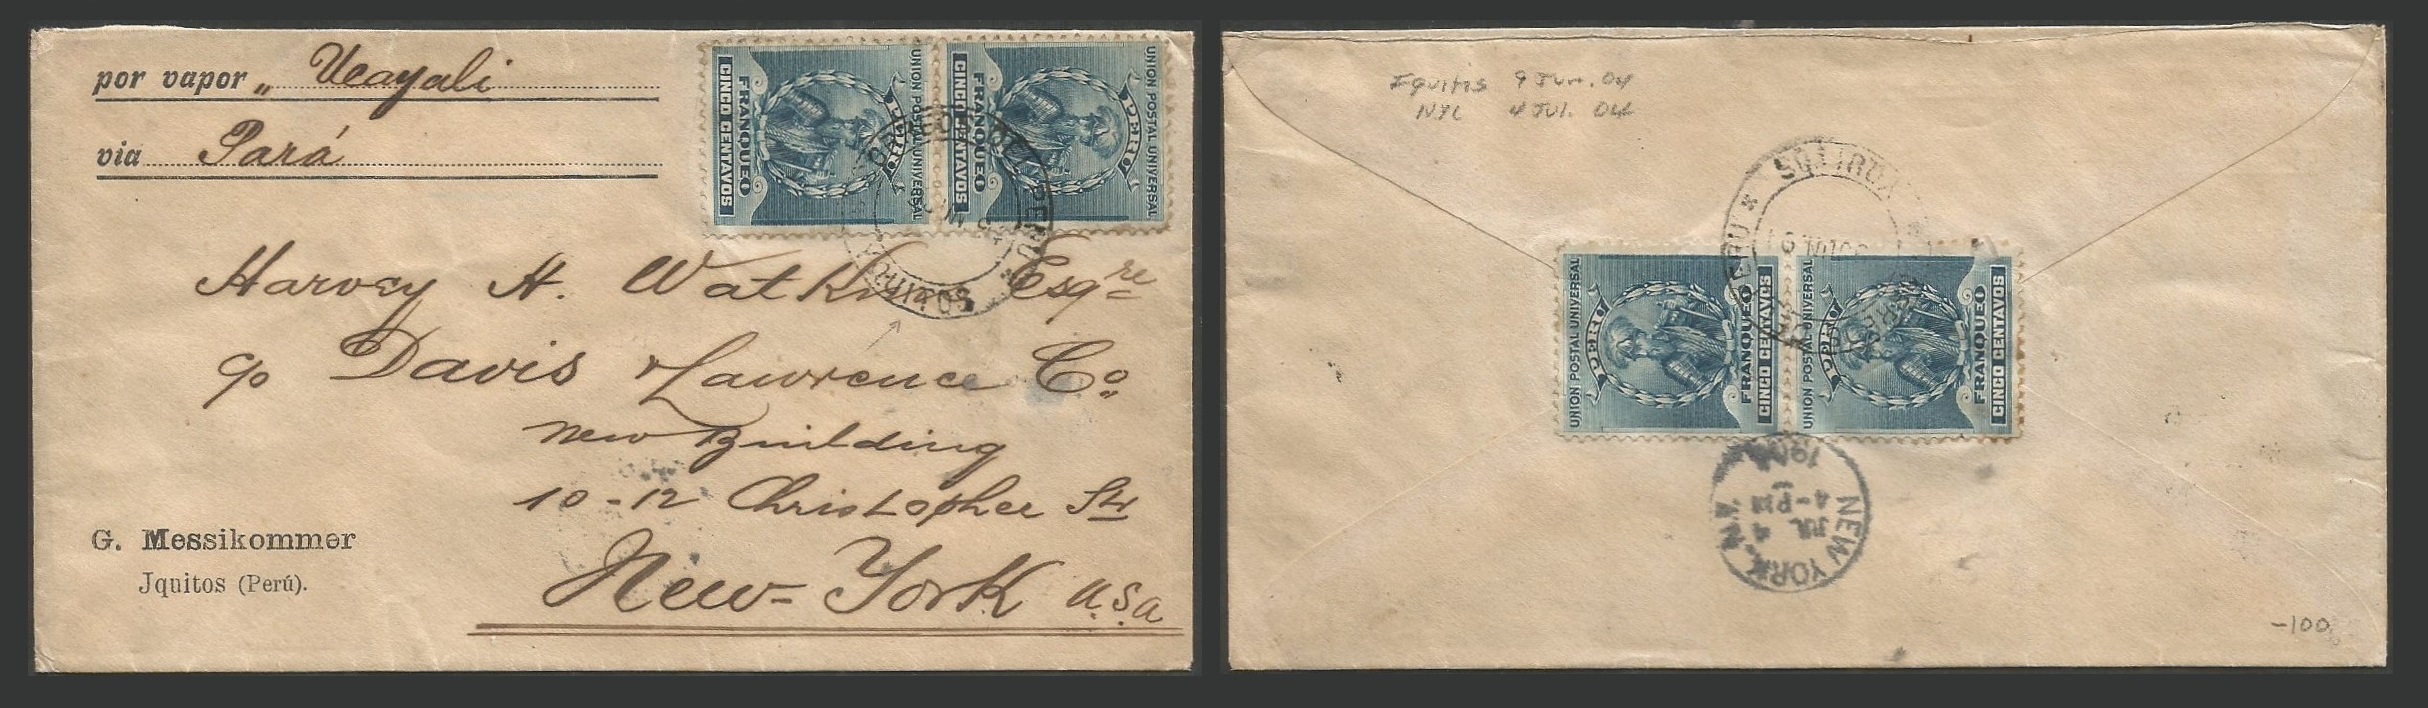 por vapor „ Ucayali
via Pará
UNION POSTAL UNIVERSAL
PERU
FRANQUEO
CINCO CENTAVOS
UNION POSTAL UNIVERSAL
PERU
FRANQUEO
CINCO CENTAVOS
CORREOS DEL PERU
IQUITOS
Harvey H. Watkins Esqre
c/o Davis & Lawrence Co
New Building
10-12 Christopher Str
New-York U.S.A
G. Messikommer
Jquitos (Perú).
Iquitis 9 Jun. 04
NYC 4 Jul. 04
IQUITOS
UNION POSTAL UNIVERSAL
PERU
FRANQUEO
CINCO CENTAVOS
UNION POSTAL UNIVERSAL
PERU
FRANQUEO
CINCO CENTAVOS
NEW YORK, N.Y.
JUL 4
4-PM
190
-100